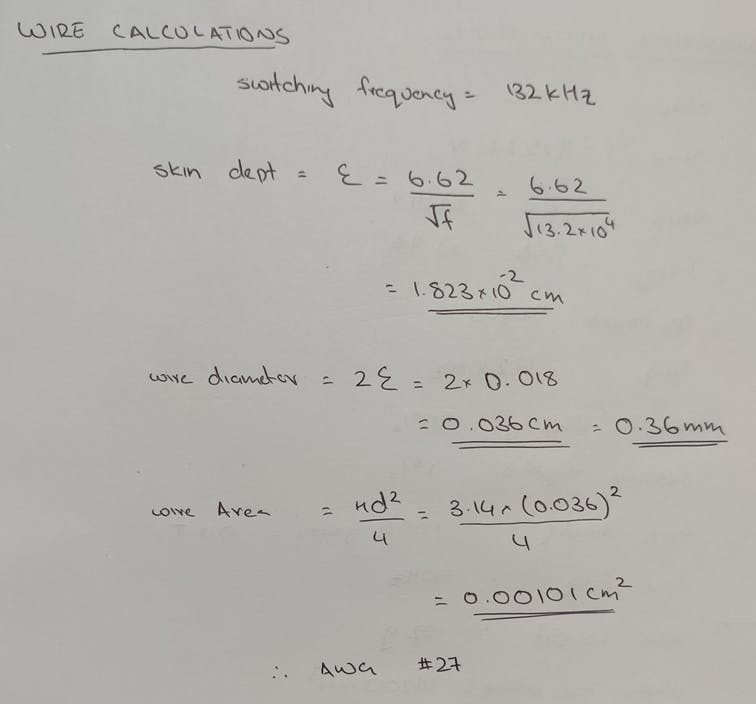 WIRE CALCULATIONS
switching frequency = 132 kHz
skin dept = ε = 6.62 / √f = 6.62 / √13.2×10⁴
= 1.823×10⁻² cm
wire diameter = 2ε = 2× 0.018
= 0.036 cm = 0.36 mm
wire Area = πd² / 4 = 3.14 × (0.036)² / 4
= 0.00101 cm²
∴ AWG #27